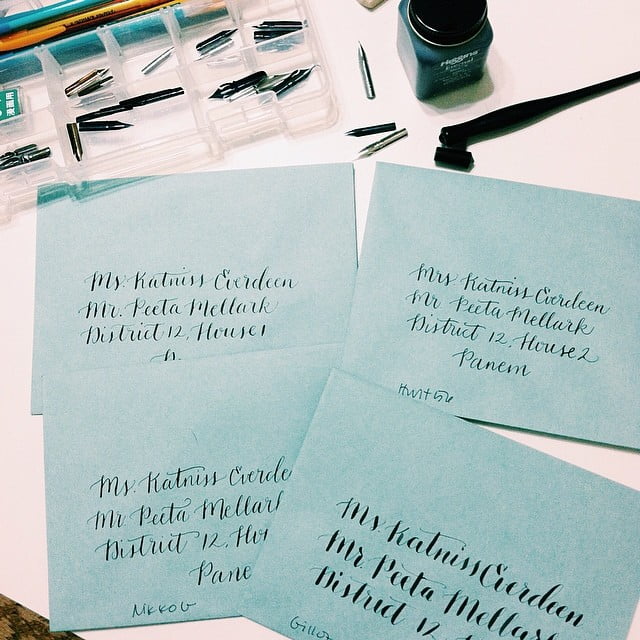 Higgins
Eternal
Ms. Katniss Everdeen
Mr. Peeta Mellark
District 12, House 1
Mrs Katniss Everdeen
Mr Peeta Mellark
District 12, House 2
Panem
Hunt 56
Ms. Katniss Everde
Mr. Peeta Mellark
District 12, Hou
Pane
Nikko G
Ms Katniss Everdeen
Mr Peeta Mellark
District 12
Gillot